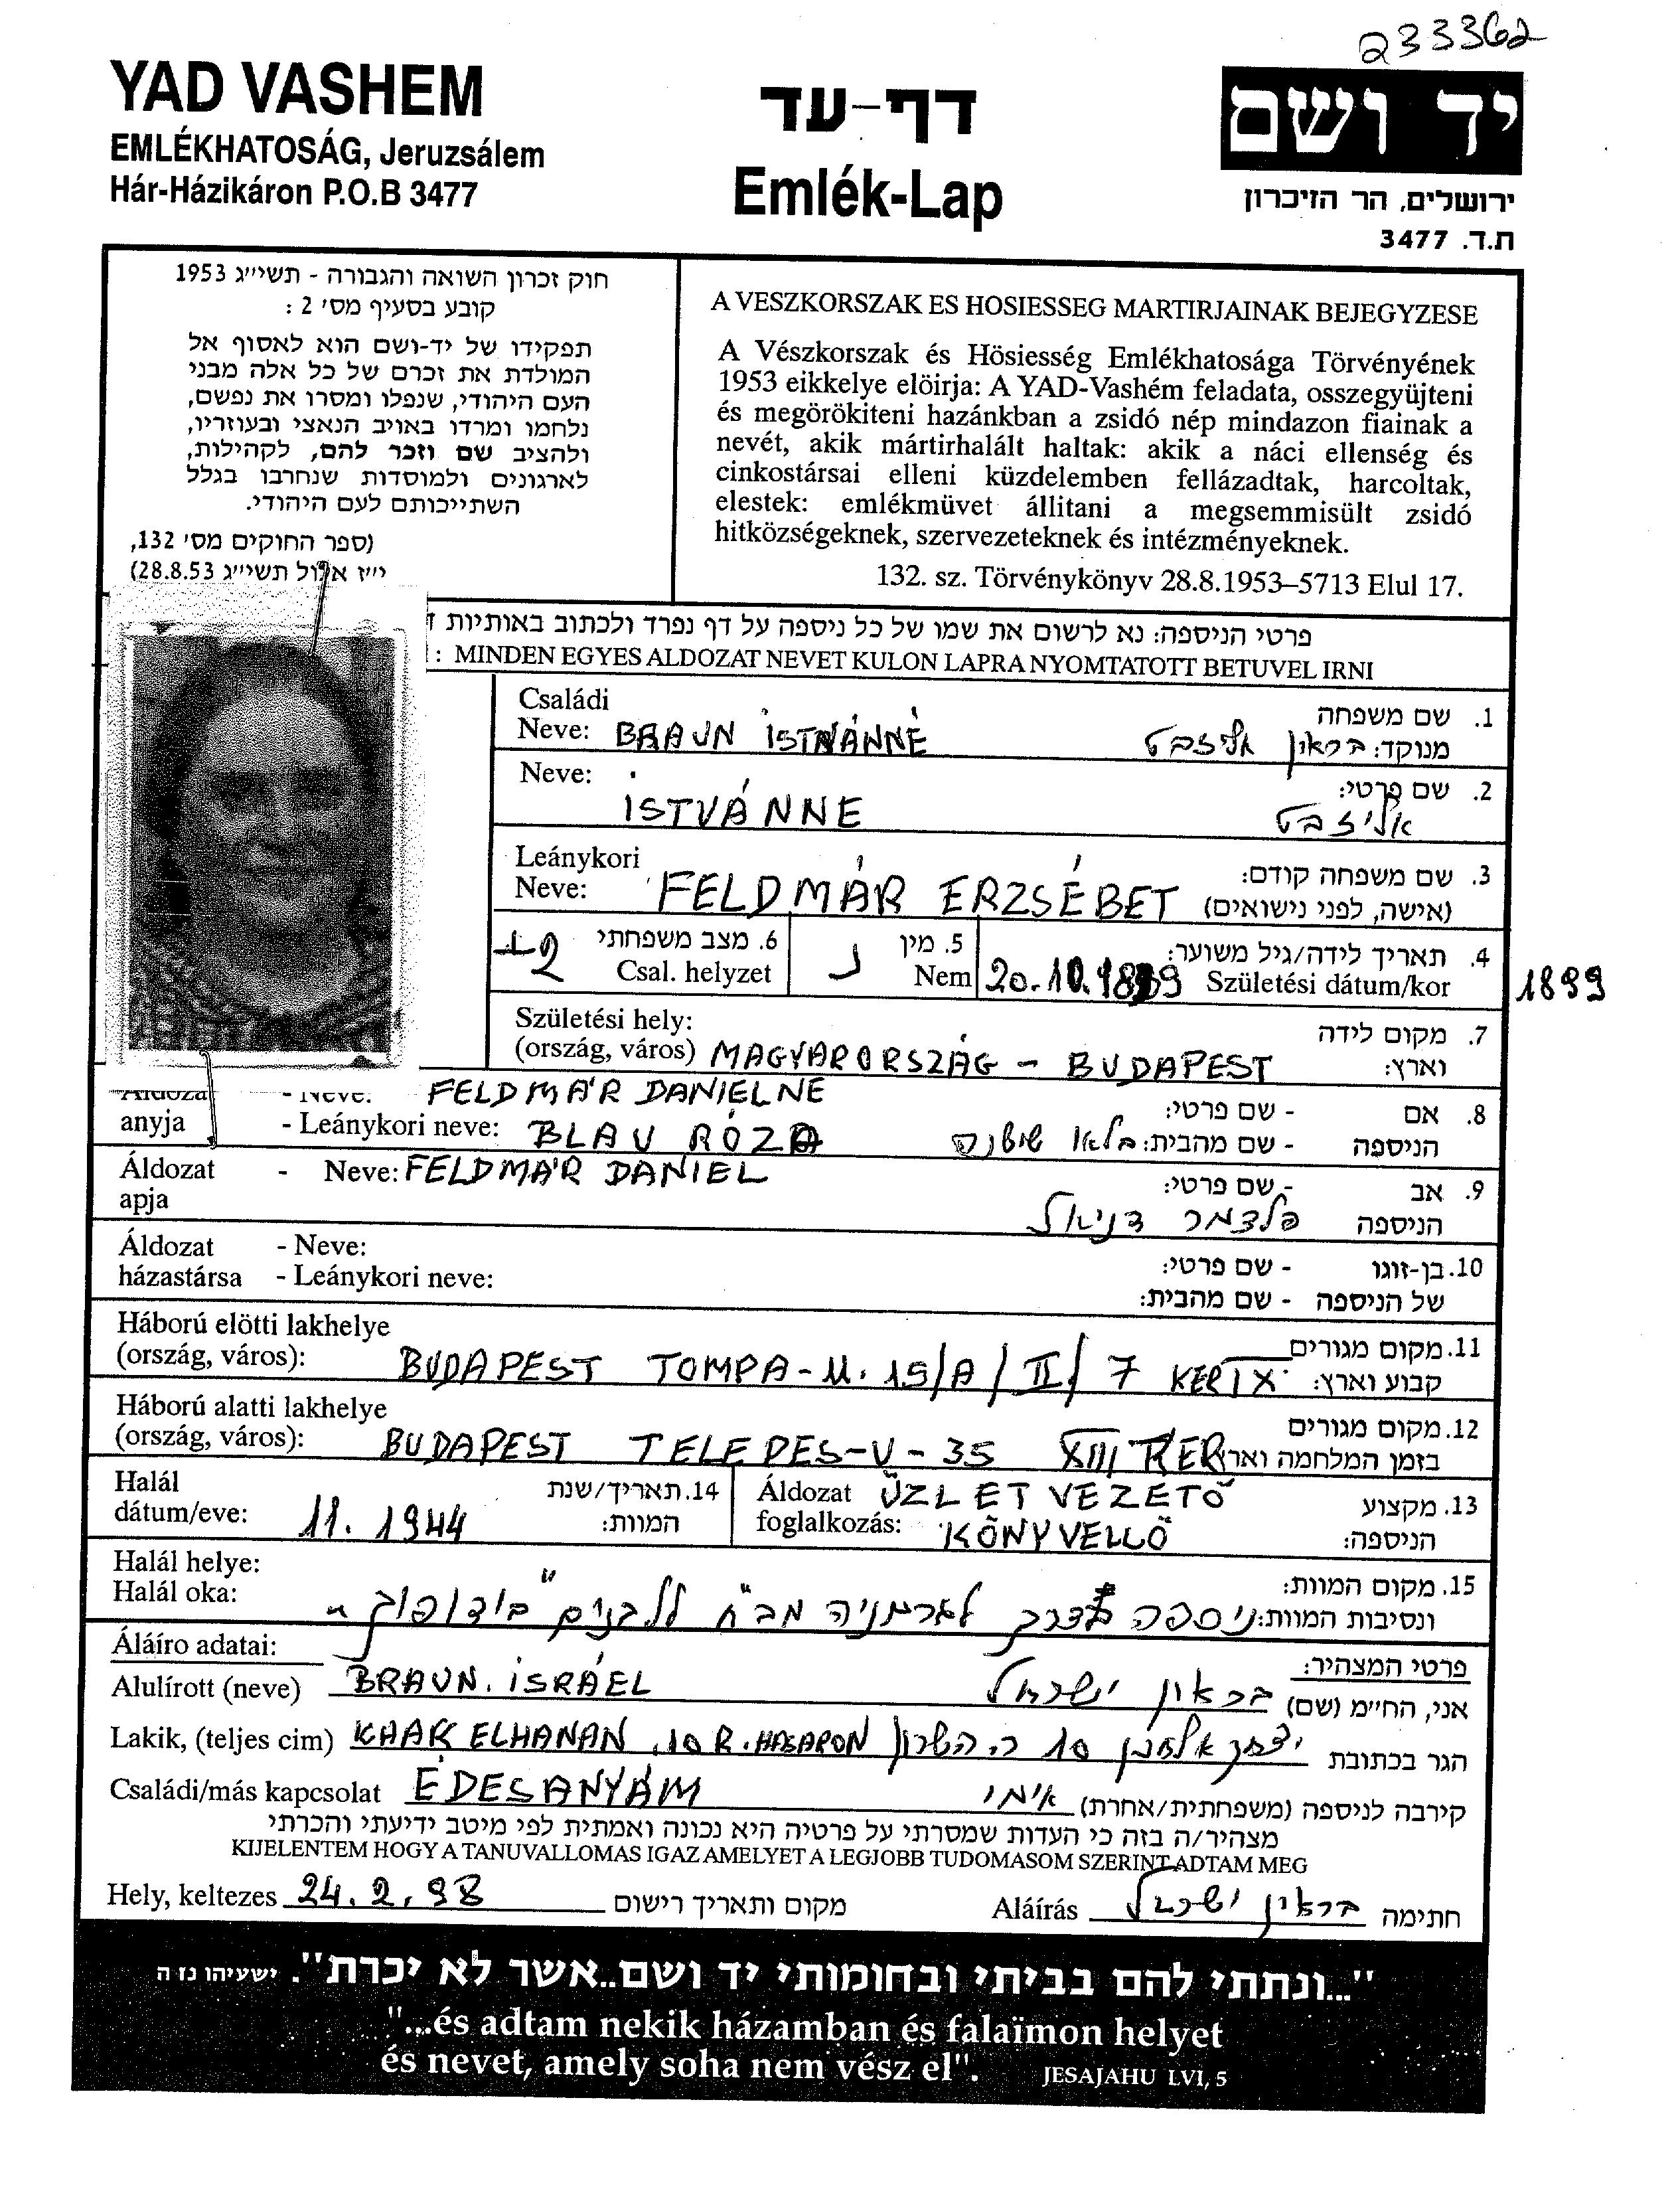 233362
YAD VASHEM
EMLÉKHATOSÁG, Jeruzsálem
Hár-Házikáron P.O.B 3477
דף-עד
Emlék-Lap
יד ושם
ירושלים, הר הזיכרון
ת.ד. 3477
חוק זכרון השואה והגבורה - תשי״ג 1953
קובע בסעיף מס׳ 2 :
תפקידו של יד-ושם הוא לאסוף אל
המולדת את זכרם של כל אלה מבני
העם היהודי, שנפלו ומסרו את נפשם,
נלחמו ומרדו באויב הנאצי ובעוזריו,
ולהציב שם וזכר להם, לקהילות,
לארגונים ולמוסדות שנחרבו בגלל
השתייכותם לעם היהודי.
(ספר החוקים מס׳ 132,
י״ז אלול תשי״ג 28.8.53)
A VESZKORSZAK ES HOSIESSEG MARTIRJAINAK BEJEGYZESE
A Vészkorszak és Hösiesség Emlékhatosága Törvényének
1953 eikkelye elöirja: A YAD-Vashém feladata, osszegyüjteni
és megörökiteni hazánkban a zsidó nép mindazon fiainak a
nevét, akik mártirhalált haltak: akik a náci ellenség és
cinkostársai elleni küzdelemben fellázadtak, harcoltak,
elestek: emlékmüvet állitani a megsemmisült zsidó
hitközségeknek, szervezeteknek és intézményeknek.
132. sz. Törvénykönyv 28.8.1953–5713 Elul 17.
פרטי הניספה: נא לרשום את שמו של כל ניספה על דף נפרד ולכתוב באותיות ד
: MINDEN EGYES ALDOZAT NEVET KULON LAPRA NYOMTATOTT BETUVEL IRNI
Családi
Neve: BRAUN ISTVÁNNÉ
1. שם משפחה
מנוקד: בראון אליזבט
Neve: ISTVÁNNE
2. שם פרטי:
אליזבט
Leánykori
Neve: FELDMÁR ERZSÉBET
3. שם משפחה קודם:
(אישה, לפני נישואים)
6. מצב משפחתי +2
Csal. helyzet
5. מין נ
Nem
4. תאריך לידה/גיל משוער:
20.10.1899 Születési dátum/kor
1899
Születési hely:
(ország, város) MAGYARORSZÁG - BUDAPEST
7. מקום לידה
וארץ:
Áldozat - Neve: FELDMÁR DANIELNE
anyja - Leánykori neve: BLAU RÓZA
8. אם - שם פרטי:
הניספה - שם מהבית: בלאו
Áldozat - Neve: FELDMÁR DANIEL
apja
9. אב - שם פרטי:
הניספה פלדמר דניאל
Áldozat - Neve:
házastársa - Leánykori neve:
10. בן-זוגו - שם פרטי:
של הניספה - שם מהבית:
Háború elötti lakhelye
(ország, város): BUDAPEST TOMPA-U. 15/A/II/7 KER IX
11. מקום מגורים
קבוע וארץ:
Háború alatti lakhelye
(ország, város): BUDAPEST TELEPES-U-35 XIII KER
12. מקום מגורים
בזמן המלחמה וארץ
Halál
dátum/eve: 11. 1944
14. תאריך/שנת
המוות:
Áldozat ÜZLET VEZETŐ
foglalkozás: KÖNYVELLŐ
13. מקצוע
הניספה:
Halál helye:
Halál oka:
15. מקום המוות:
ונסיבות המוות: ניספה בדרך לגרמניה מבי״ח ללבנים
Áláíro adatai:
פרטי המצהיר:
Alulírott (neve) BRAUN. ISRÁEL
אני, החי״מ (שם) בראון ישראל
Lakik, (teljes cim) KHAK ELHANAN .10 R. HASARON
הגר בכתובת יצחק אלחנן 10 ר. השרון
Családi/más kapcsolat ÉDESANYÁM
קירבה לניספה (משפחתית/אחרת) אימי
מצהיר/ה בזה כי העדות שמסרתי על פרטיה היא נכונה ואמתית לפי מיטב ידיעתי והכרתי
KIJELENTEM HOGY A TANUVALLOMAS IGAZ AMELYET A LEGJOBB TUDOMASOM SZERINT ADTAM MEG
Hely, keltezes 24.2.98 מקום ותאריך רישום
Aláírás בראון ישראל חתימה
"...ונתתי להם בביתי ובחומותי יד ושם..אשר לא יכרת". ישעיהו נו ה
"...és adtam nekik házamban és falaïmon helyet
és nevet, amely soha nem vész el". JESAJAHU LVI, 5